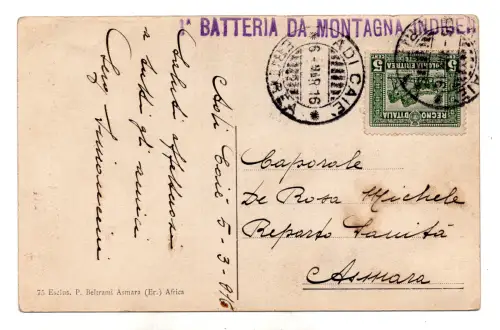 1ª BATTERIA DA MONTAGNA INDIGEN
ADI CAIE'
6-3-16
ERITREA
REGNO D'ITALIA
COLONIA ERITREA
5
5
Caporale
De Rosa Michele
Reparto Sanità
Asmara
Adi Caié 5-3-916
Saluti affettuosi
a tutti gli amici
75 Esclus. P. Beltrami Asmara (Er.) Africa